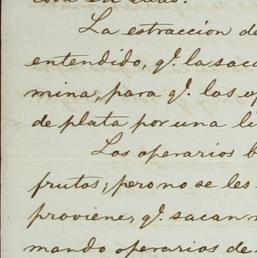 La estracción de
entendido, q.e la saca
mina, para q.e los op
de plata por una li
Los operarios b
frutos; pero no se les
proviene, q.e sacan
mando operarios de